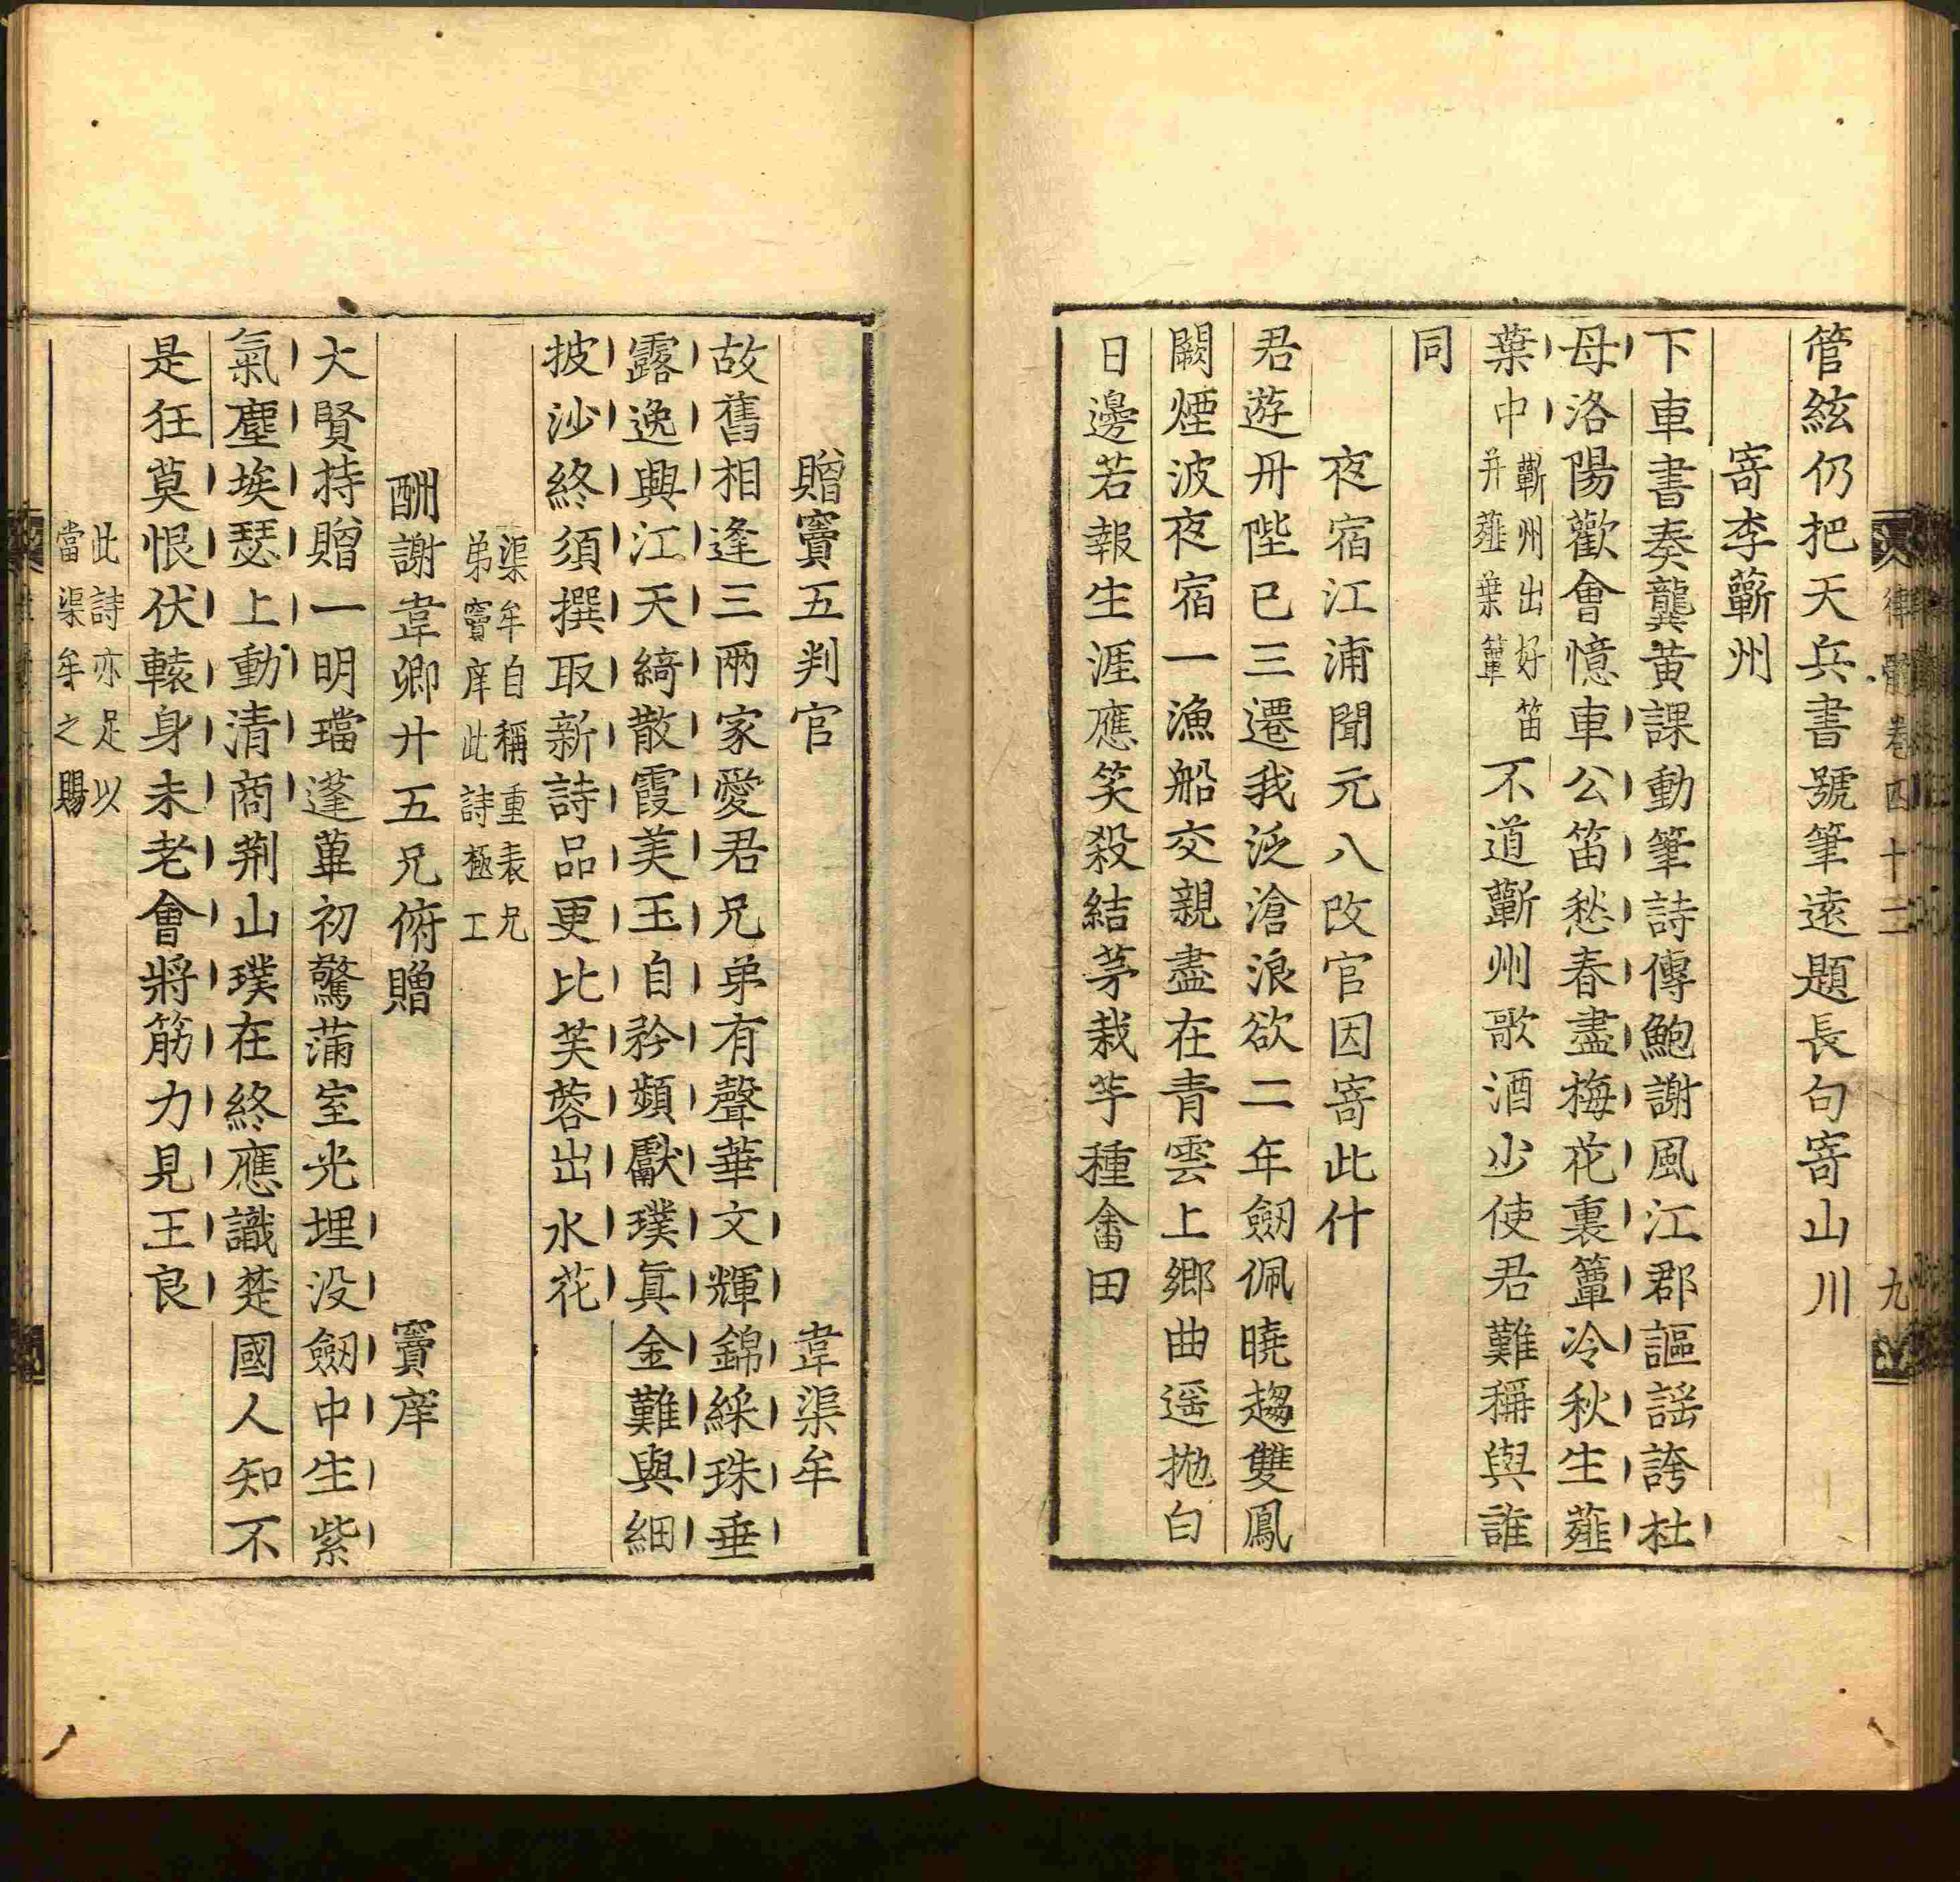 管絃仍把天兵書號筆遠題長句寄山川
寄李蘄州
下車書奏龔黃課動筆詩傳鮑謝風江郡謳謠誇杜
母洛陽歡會憶車公笛愁春盡梅花裏簟冷秋生薤
葉中蘄州出好笛并薤葉簟不道蘄州歌酒少使君難稱與誰
同
夜宿江浦聞元八改官因寄此什
君遊丹陛已三遷我泛滄浪欲二年劒佩曉趨雙鳳
闕煙波夜宿一漁船交親盡在青雲上鄉曲遥拋白
日邊若報生涯應笑殺結茅栽芋種畬田
贈竇五判官 韋渠牟
故舊相逢三兩家愛君兄弟有聲華文輝錦綵珠垂
露逸興江天綺散霞美玉自矜頻獻璞真金難與細
披沙終須撰取新詩品更比芙蓉出水花
渠牟自稱重表兄
弟竇庠此詩極工
酬謝韋卿廿五兄俯贈 竇庠
大賢持贈一明璫蓬蓽初驚滿室光埋没劒中生紫
氣塵埃瑟上動清商荆山璞在終應識楚國人知不
是狂莫恨伏轅身未老會將筋力見王良
此詩亦足以
當渠牟之賜
律髓卷四十二 九